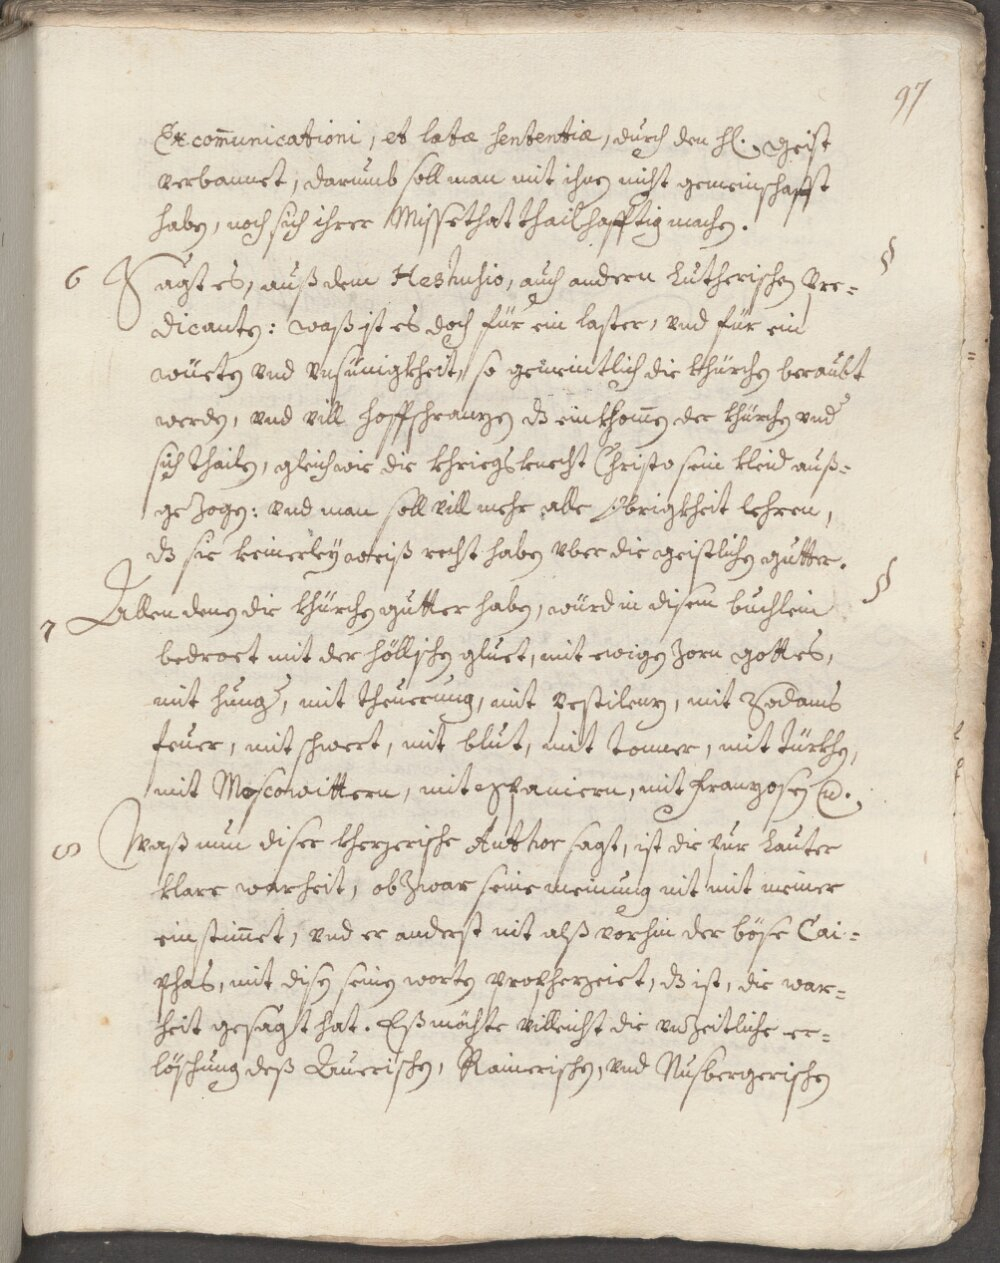 97
Excom̅unicationi, et latæ sententiæ, durch den hl: geist
verbannet, darumb soll man mit ihnen nicht gemeinschafft
haben, noch sich ihrer Missethat thailhafftig machen.
6 Sagt es, auß dem Heshusio, auch andern Lutherischen Pre= §
dicanten: waß ist es doch für ein laster, vnd für ein
wüeten vnd vnsinnigkheit, so gemeintlich die khürchen beraubt
werden, vnd vill hoffschranzen dz einkhom̅en der khürchen vnder
sich thailen, gleich wie die khriegsknecht Christo sein kleid auß=
gezogen: vnd man soll vill mehr alle Obrigkheit lehren,
dz sie keinerley weiß recht haben vber die geistlichen gütter.
7 Allen denen die khürchen gütter haben, würd in disem buchlein §
bedroet mit der höllischen gluet, mit ewigen zorn gottes,
mit hunger, mit theuerung, mit pestilenz, mit Sodams
feuer, mit schwert, mit blut, mit tonner, mit türkhen,
mit Moscowittern, mit Spaniern, mit franzosen etc.
8 Waß nun diser khezerische Author sagt, ist die pur lauter
klare warheit, ob zwar seine meinung nit mit meiner
einstim̅et, vnd er anderst nit alß vorhin der böse Cai=
phas, mit disen seinen worten propheceiet, dz ist, die war=
heit gesagt hat. Eß möchte villeicht die vnzeitliche er=
löschung deß Auerischen, Rainerischen, vnd Nusbergerischen